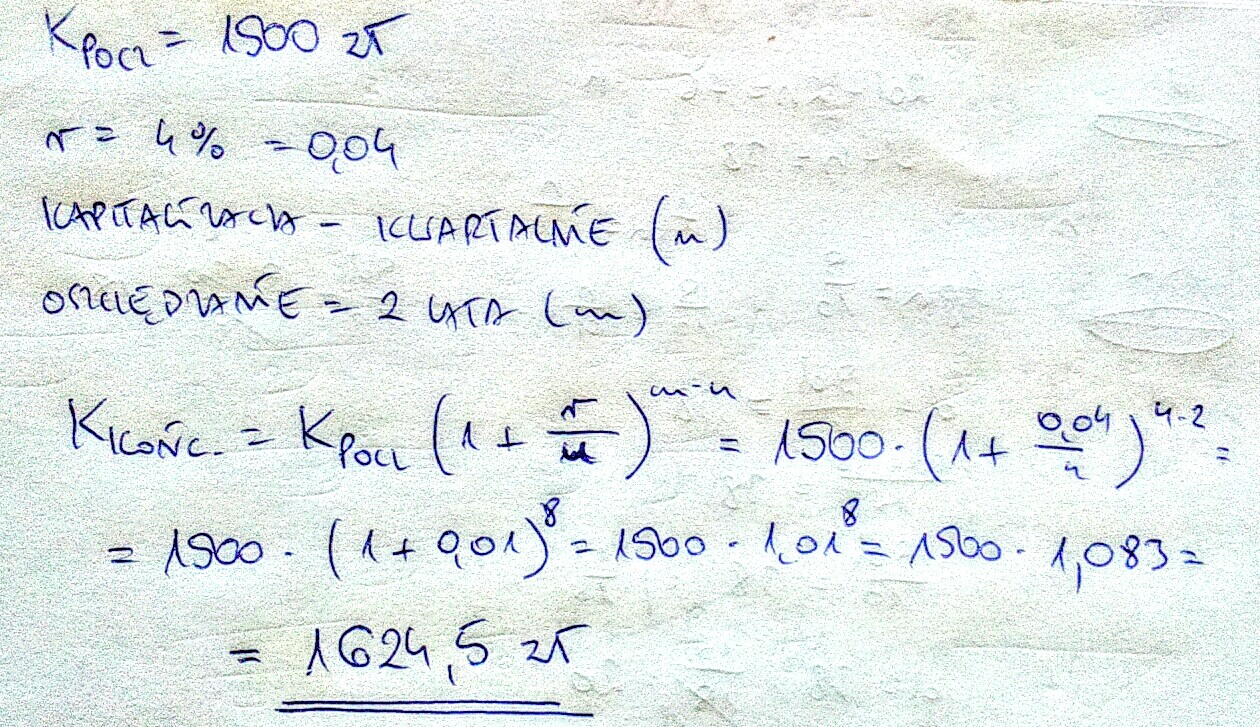 Kpocz = 1500 zł
r = 4% = 0,04
KAPITALIZACJA - KWARTALNIE (n)
OSZCZĘDZANIE = 2 LATA (m)
Kkońc. = Kpocz (1 + r/n)^m·n = 1500 · (1 + 0,04/4)^4·2 =
= 1500 · (1 + 0,01)^8 = 1500 · 1,01^8 = 1500 · 1,083 =
= 1624,5 zł